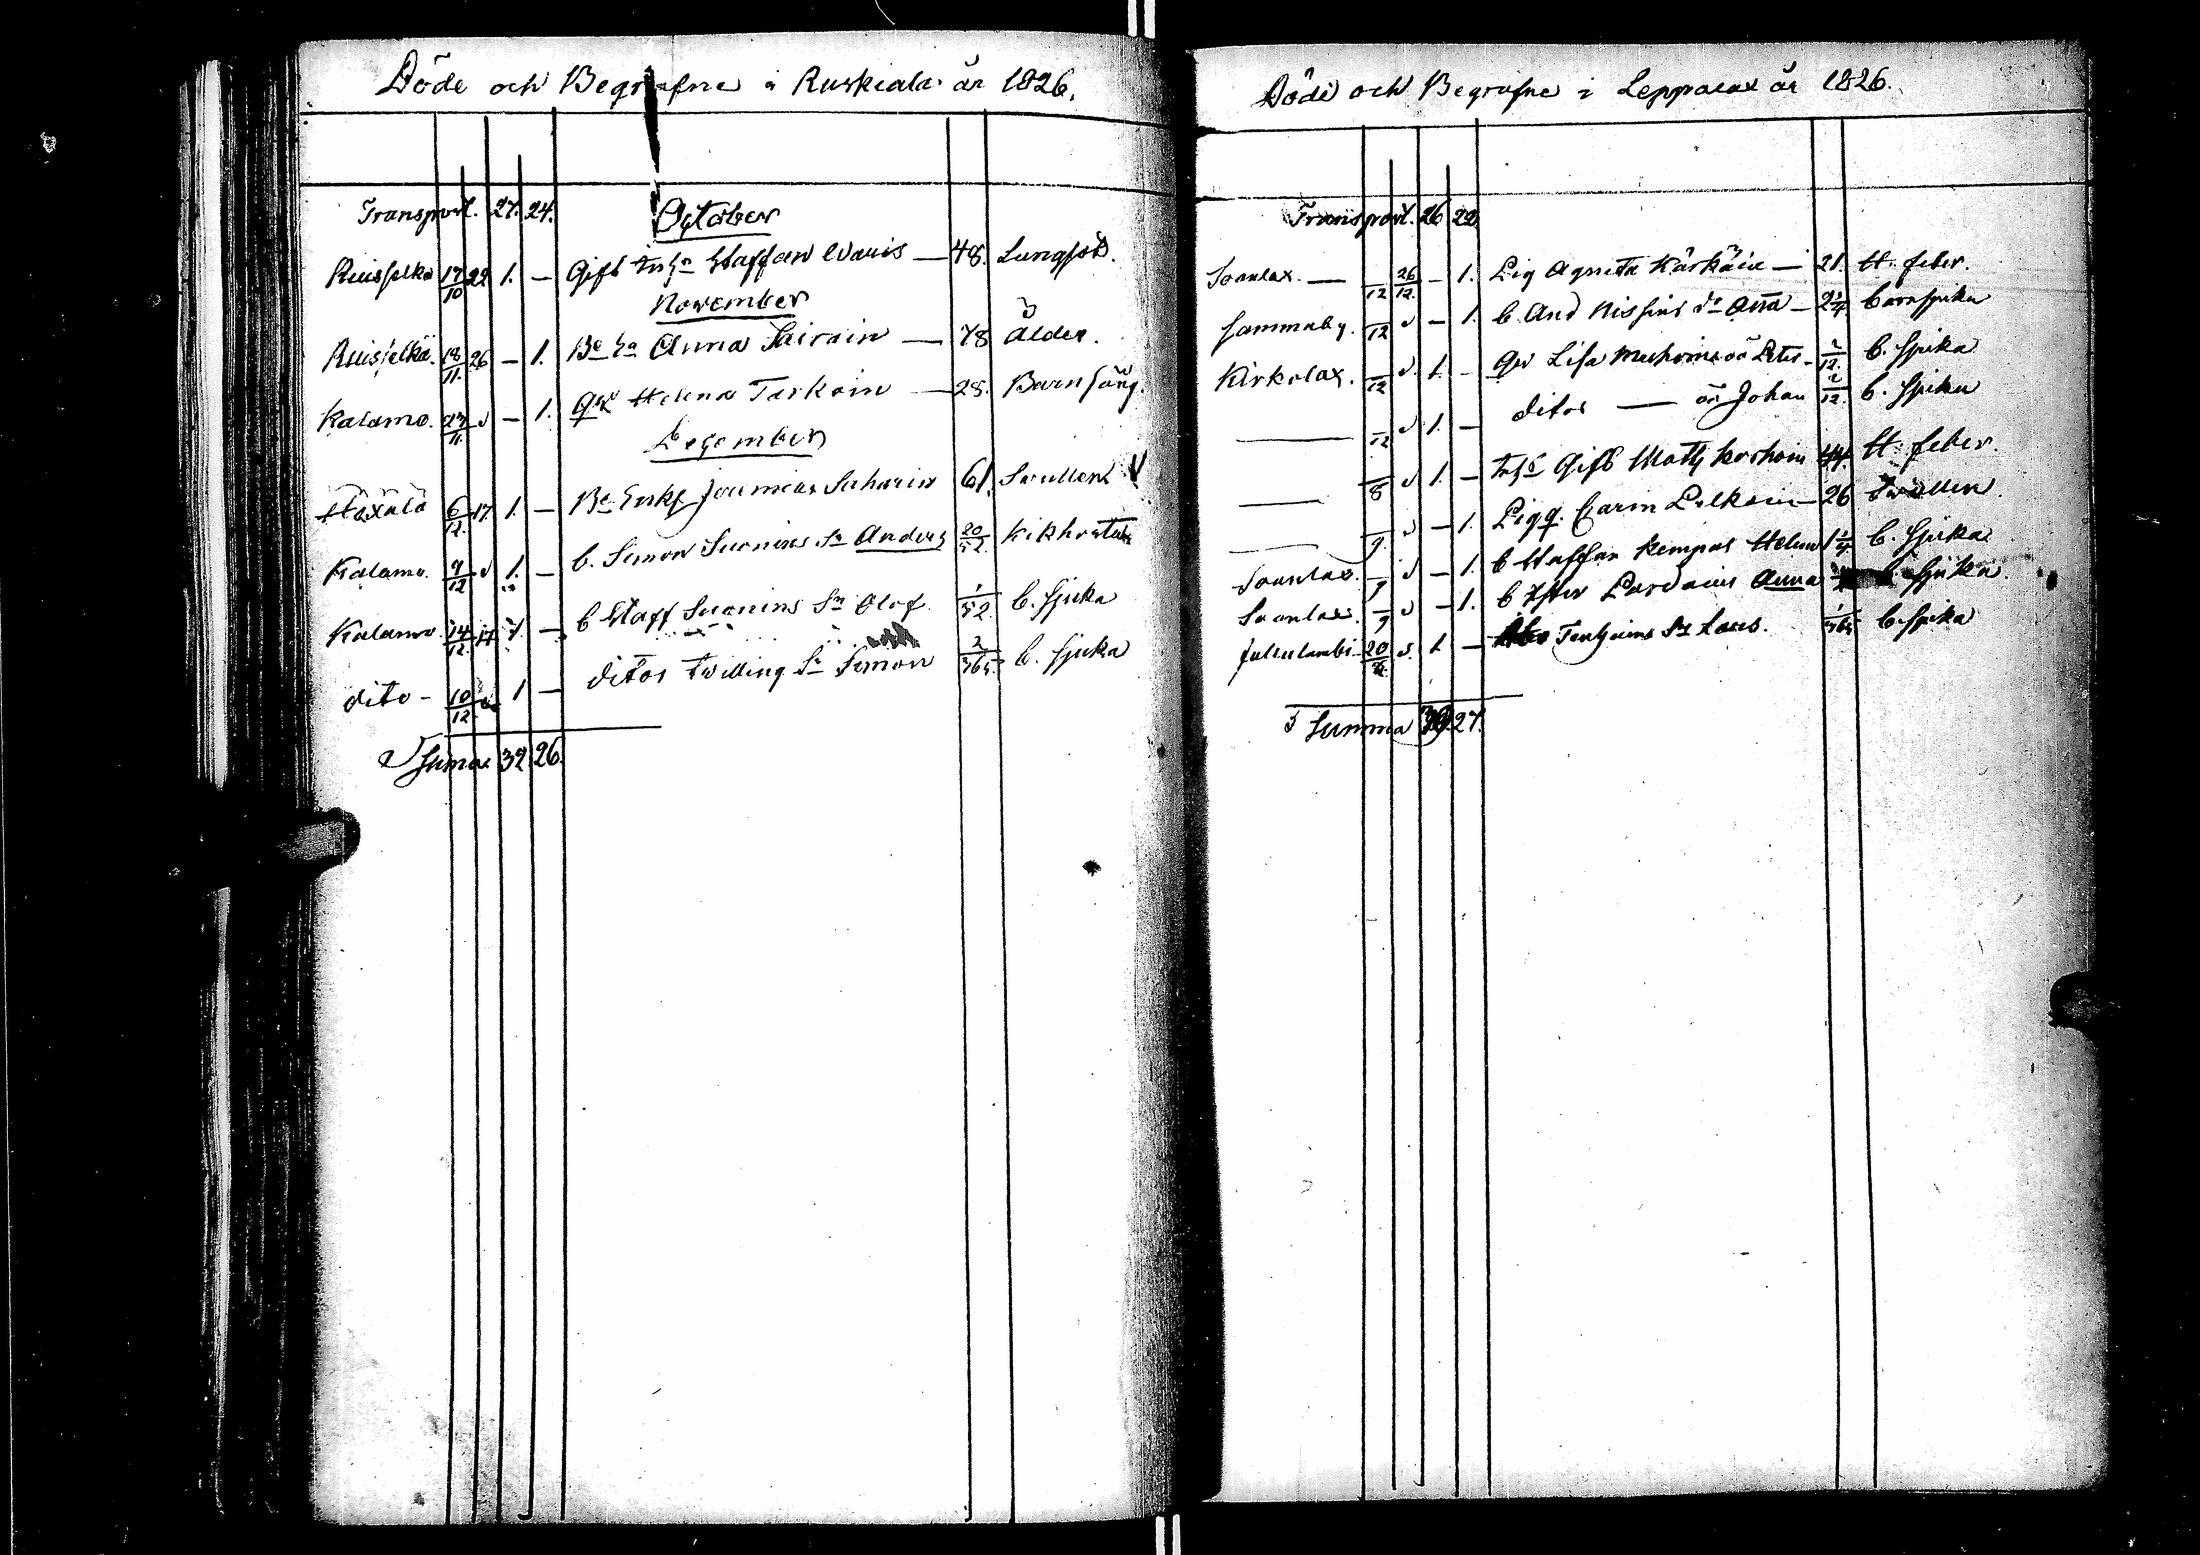 Döde och Begrafne i Ruskiala år 1826.
Transport. 27. 24.
October
Ruisselkä 17/10 22 1. — Gift Inhs Staffan Waris — 48. Lungsot.
November
Ruisselkä. 18/11. 26 — 1. Be Ea Anna Sairain — 78 Ålder.
Kalamo. 27/11 d — 1. Helena Tarkain — 28. Barnsäng.
December
Höxölö 6/12. 17 1. — Be Enkl Saharin 61. Swullen
Kalamo. 9/12 d 1. — b. Simon Suonius Sn Anders 20/52. Kikhosta
Kalamo 14/12. 17 1. — b Staff Suonius Sn Olof. 1/52 b. sjuka
dito - 10/12. 1 — ditos twilling Sn Simon 2/365. b. sjuka
Summa 32 26.
Döde och Begrafne i Leppälax år 1826.
Transport. 26 22
Soanlax. — /12 26/12. — 1. Pig Agneta Kärkäin — 21. H. feber.
Sammaby. /12 d — 1. b. And Nissins dr Anna — 2 1/4 barnsjuka
Kirkolax. /12 d. 1. — Lisa oä Peter — 2/12. b. sjuka
— /12 d 1. — ditos — oä Johan 2/12. b. sjuka
— /8 d 1. — Inhs Gift Matts Korhoin 44. H. feber.
— /9. d — 1. Pigq. Carin Pelkoin — 26 Swullen.
Soanlax. — /9 d — 1. b Staffan Kempas Helena 1 1/4 b. sjuka
Soanlax. /9 d — 1. b Anna b. sjuka.
Jalkulambi 20/12. d. 1. — Sn Lars. 1/365 b. sjuka
Summa 27.